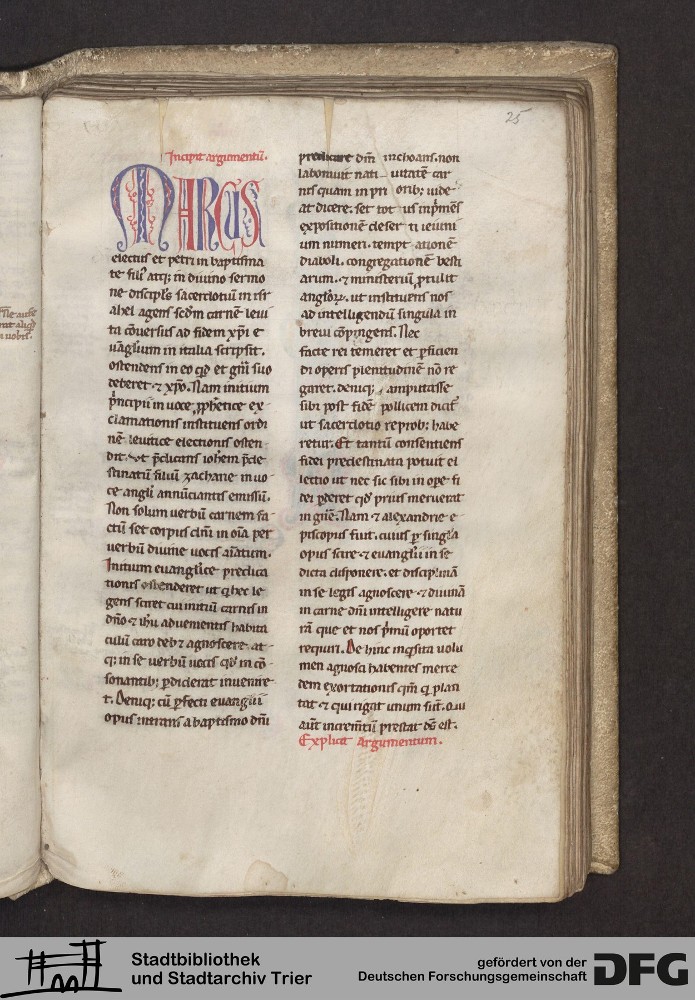 25
Incipit argumentũ.
MARCUS
electus et petri in baptisma
te filiꝰ atq; in divino sermo
ne discipĺs sacerdotiũ in isr
ahel agens scďm carnẽ levi
ta cõversus ad fidem xp̃i e
vãgĺium in italia scripsit.
ostendens in eo qđ et gñi suo
deberet ⁊ xp̃o. Nam initium
p̃ncipii in voce ꝓphetice ex
clamationis instituens ordi
nẽ levitice electionis osten
dit. ut p̃dicans ioh̃em p̃de
stinatũ filiũ zacharie in vo
ce angĺi annũciantis emissũ.
Non solum verbũ carnem fa
ctũ set corpus dñi in oĩa per
verbũ divine vocis aĩatum.
Initium evangĺice predica
tionis ostenderet ut q̃ hec le
gens sciret cui initiũ carnis in
dño ⁊ ih̃u advenientis habita
culũ caro deb; agnoscere. at
q; in se verbũ vocis qđ in cõ
sonantib; ꝑdiderat invenire
t. Deniq; cũ ꝑfecti evangĺii
opus intrans a baptismo dñi
predicare dm̃ inchoans. non
laboravit nati vitatẽ car
nis quam in pri orib; vide
at dicere. set tot us inp̃mẽs
expositionẽ deser ti ieiuni
um numeri. tempt ationẽ
diaboli. congregationẽ besti
arum. ⁊ ministeriũ ꝓtulit
angĺoꝝ. ut instituens nos
ad intelligendũ singula in
brevi cõpingens. Nec
facte rei temeret et ꝑficien
di operis plenitudinẽ nõ ne
garet. deniq; amputasse
sibi post fidẽ pollicem dicit̃
ut sacerdotio reprob; habe
retur. Et tantũ consentiens
fidei predestinata potuit el
lectio ut nec sic sibi in ope fi
dei ꝑderet qđ prius meruerat
in gñe. Nam ⁊ alexandrie e
piscopus fuit. cuius ꝑ singĺa
opus scire ⁊ evangĺii in se
dicta disponere. et disciplinã
in se legis agnoscere ⁊ divinã
in carne dñi intelligere natu
rã que et nos p̃mũ oportet
requiri. De hinc inq̃sita volu
men agnosci habentes merce
dem exortationis qm̃ q̃ plan
tat ⁊ qui rigat unum sũt. qui
aũt incrementũ prestat ďs est.
Explicit argumentum.
Stadtbibliothek
und Stadtarchiv Trier
gefördert von der
Deutschen Forschungsgemeinschaft
DFG